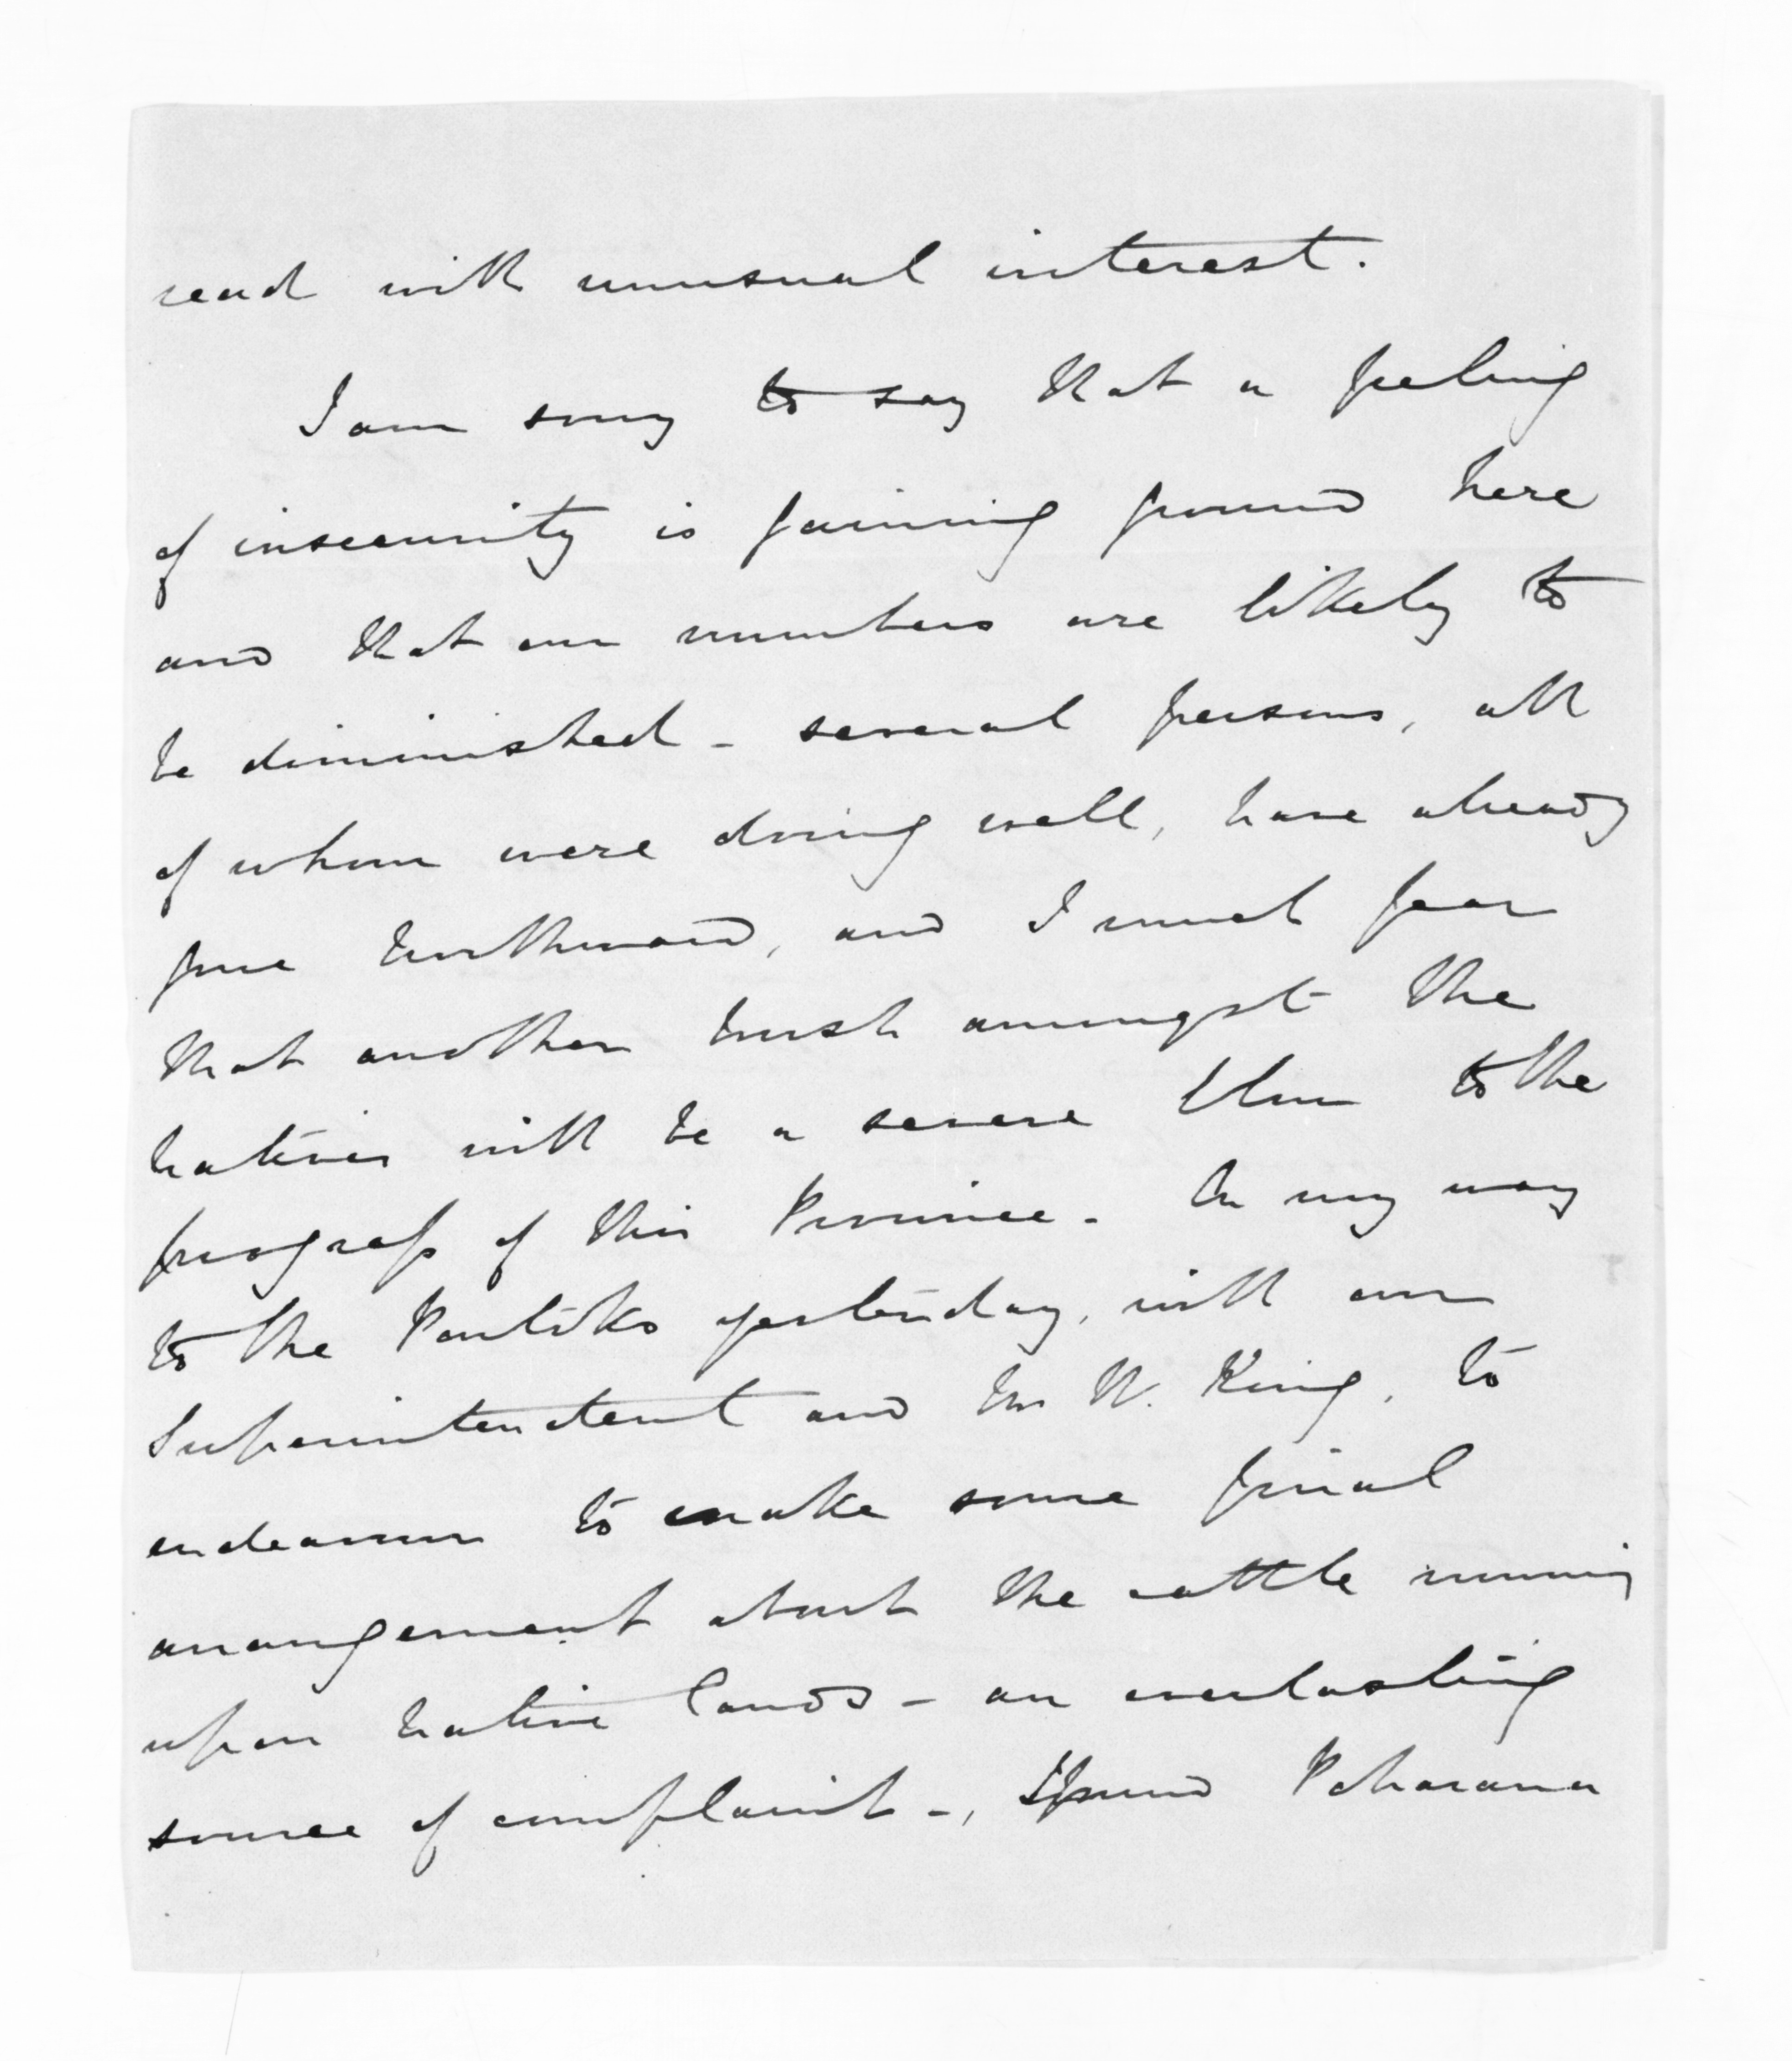 read with unusual interest.
I am sorry to say that a feeling
of insecurity is gaining ground here
and that our numbers are likely to
be diminished - several persons, all
of whom were doing well, have already
gone Northward, and I much fear
that another brush amongst the
natives will be a severe blow to the
progress of this Province - On my way
to the Poutoko yesterday, with our
Superintendent and Mr N. King, to
endeavour to make some final
arrangement about the cattle running
upon native lands - an everlasting
source of complaint -, I found Poharama